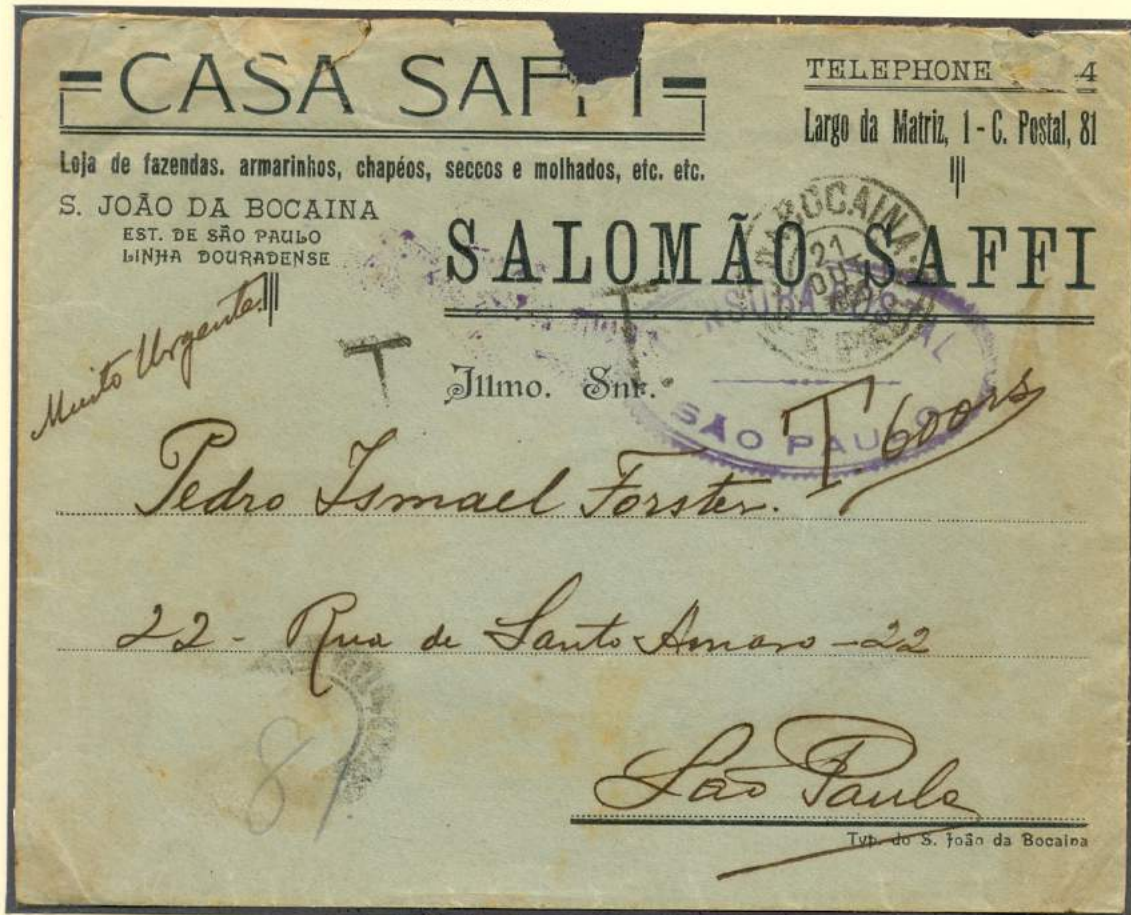 CASA SAFFI
TELEPHONE 4
Largo da Matriz, 1 - C. Postal, 81
Loja de fazendas. armarinhos, chapéos, seccos e molhados, etc. etc.
S. JOÃO DA BOCAINA
EST. DE SÃO PAULO
LINHA DOURADENSE
SALOMÃO SAFFI
BOCAINA
21
OUT
Muito Urgente.
T
T
POSTAL
SÃO PAULO
Illmo. Snr.
T. 600rs
Pedro Ismael Forster.
22 - Rua de Santo Amaro - 22
81
São Paulo
Typ. do S. João da Bocaina